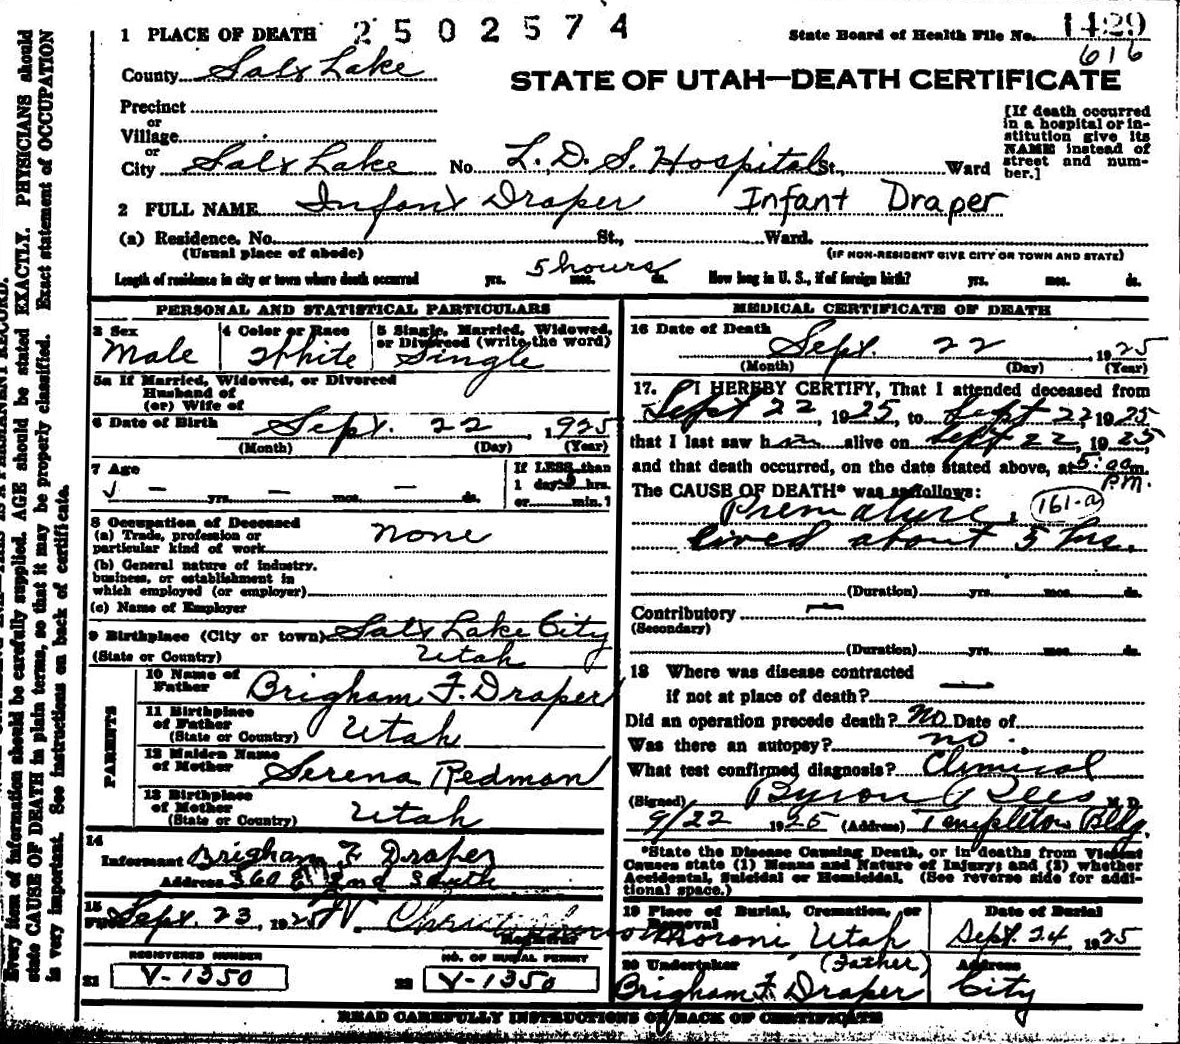 1 PLACE OF DEATH 2502574 State Board of Health File No. 1429
616
County Salt Lake STATE OF UTAH—DEATH CERTIFICATE
Precinct
or
Village
or
City Salt Lake No. L. D. S. Hospital St., Ward
[If death occurred
in a hospital or in-
stitution give its
NAME instead of
street and num-
ber.]
2 FULL NAME Infant Draper Infant Draper
(a) Residence. No. St., Ward.
(Usual place of abode) (IF NON-RESIDENT GIVE CITY OR TOWN AND STATE)
Length of residence in city or town where death occurred yrs. 5 hours mos. ds. How long in U. S., if of foreign birth? yrs. mos. ds.
PERSONAL AND STATISTICAL PARTICULARS
3 Sex 4 Color or Race 5 Single, Married, Widowed,
or Divorced (write the word)
Male White Single
5a If Married, Widowed, or Divorced
Husband of
(or) Wife of
6 Date of Birth Sept. 22, 1925
(Month) (Day) (Year)
7 Age If LESS than
1 day hrs.
— yrs. — mos. — ds. or min.?
8 Occupation of Deceased
(a) Trade, profession or
particular kind of work none
(b) General nature of industry,
business, or establishment in
which employed (or employer)
(c) Name of Employer
9 Birthplace (City or town) Salt Lake City
(State or Country) Utah
PARENTS
10 Name of
Father Brigham F. Draper
11 Birthplace
of Father
(State or Country) Utah
12 Maiden Name
of Mother Serena Redman
13 Birthplace
of Mother
(State or Country) Utah
14
Informant Brigham F. Draper
Address 360 E 2nd South
15
Sept. 23, 1925
Registrar
REGISTERED NUMBER NO. OF BURIAL PERMIT
21 V-1350 22 V-1350
MEDICAL CERTIFICATE OF DEATH
16 Date of Death
Sept. 22, 1925
(Month) (Day) (Year)
17. I HEREBY CERTIFY, That I attended deceased from
Sept 22, 1925, to Sept 22, 1925
that I last saw h alive on Sept 22, 1925
and that death occurred, on the date stated above, at 5:00 m.
P.M.
The CAUSE OF DEATH* was as follows:
Premature, 161-a
lived about 5 hrs.
(Duration) yrs. mos. ds.
Contributory —
(Secondary)
(Duration) yrs. mos. ds.
18 Where was disease contracted
if not at place of death? —
Did an operation precede death? No Date of
Was there an autopsy? no.
What test confirmed diagnosis? Clinical
(Signed) Byron Rees M. D.
9/22 1925 (Address) Templeton Bldg.
*State the Disease Causing Death, or in deaths from Violent
Causes state (1) Means and Nature of Injury; and (2) whether
Accidental, Suicidal or Homicidal. (See reverse side for addi-
tional space.)
19 Place of Burial, Cremation, or Removal Date of Burial
Moroni, Utah Sept. 24, 1925
20 Undertaker (Father) Address
Brigham F. Draper City
READ CAREFULLY INSTRUCTIONS ON BACK OF CERTIFICATE
Every item of information should be carefully supplied. AGE should be stated EXACTLY. PHYSICIANS should
state CAUSE OF DEATH in plain terms, so that it may be properly classified. Exact statement of OCCUPATION
is very important. See instructions on back of certificate.